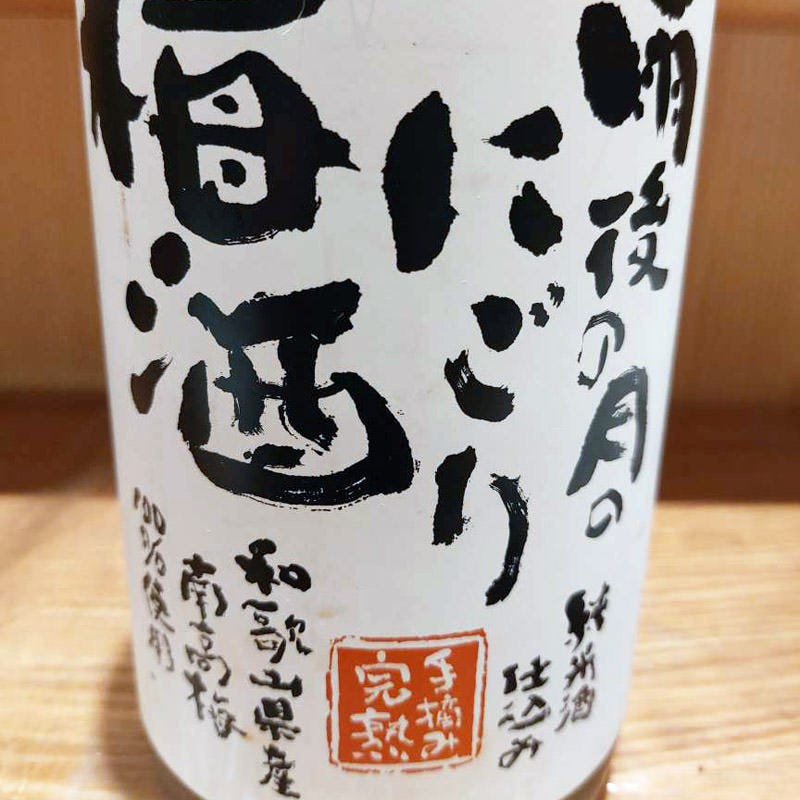 雨後の月の
純米酒
仕込み
にごり
梅酒
手摘み
完熟
和歌山県産
南高梅
100%使用